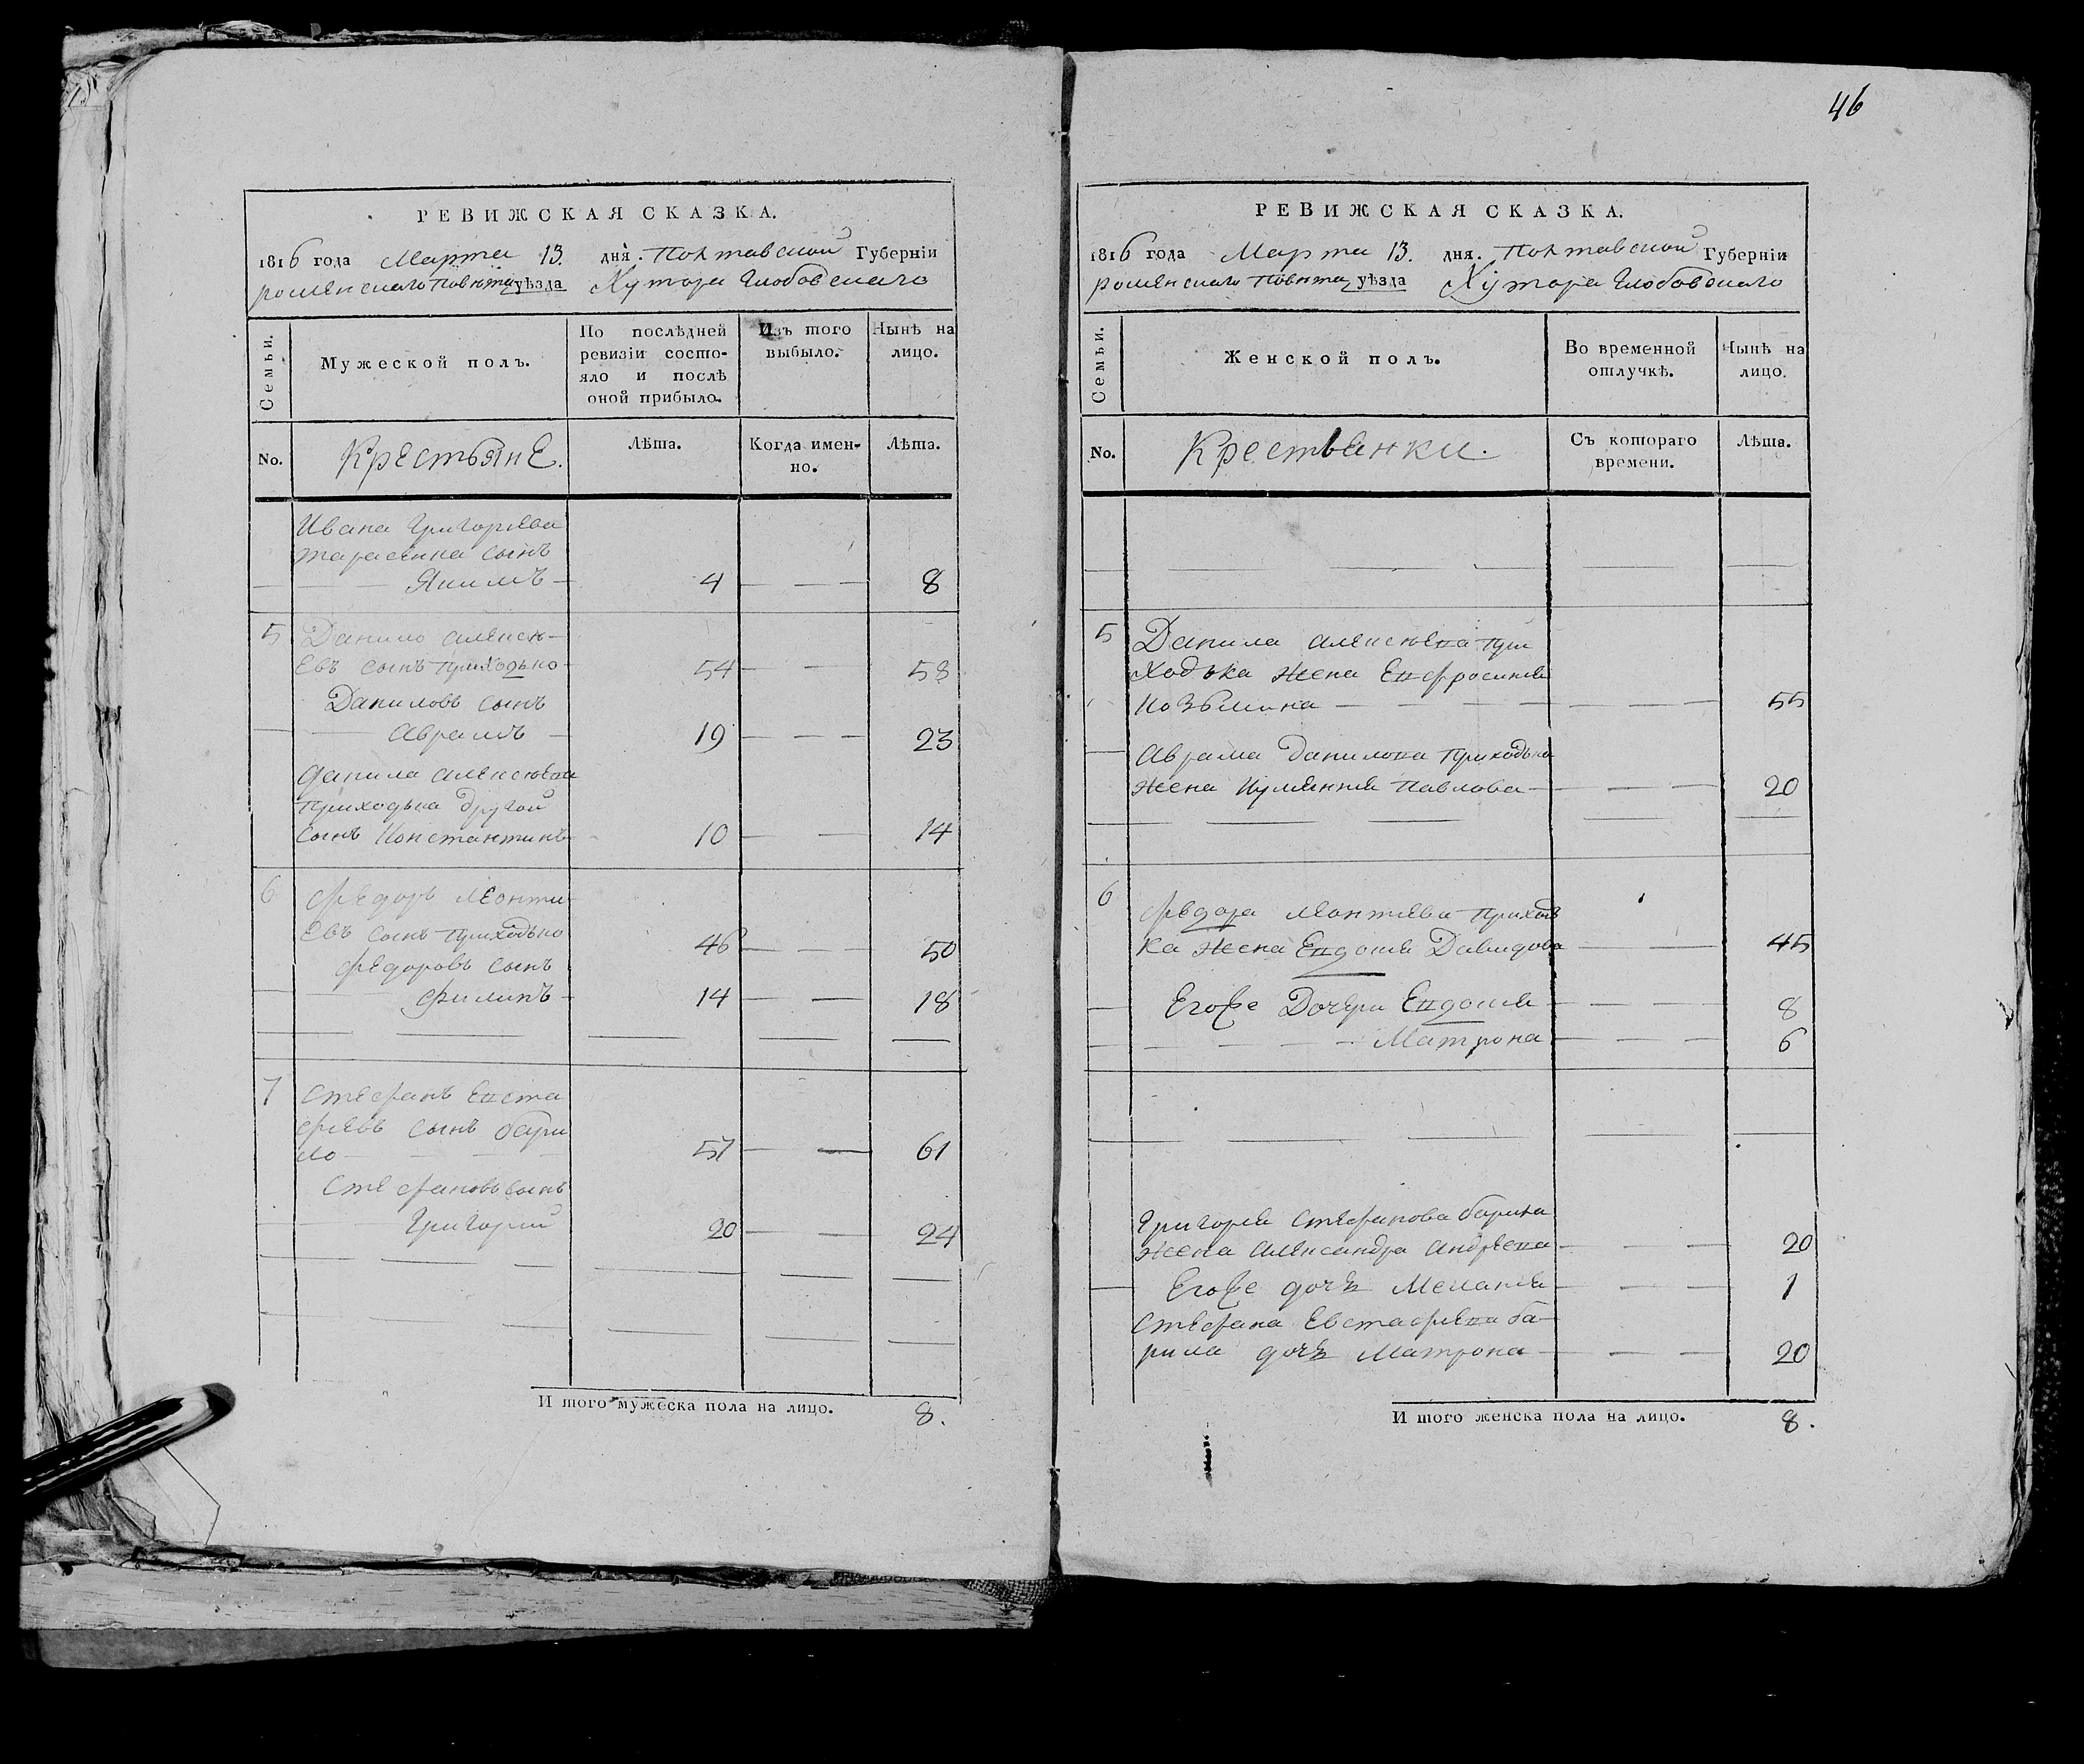 РЕВИЖСКАЯ СКАЗКА.
1816 года Марта 13. дня. Полтавской Губерніи
роменского повѣта уѣзда Хутора Глобовского
Семьи.
Мужеской полъ.
По послѣдней
ревизіи состо-
яло и послѣ
оной прибыло.
Изъ того
выбыло.
Нынѣ на
лицо.
No.
Крестьяне.
Лѣта.
Когда имен-
но.
Лѣта.
Ивана Григорьева
тарасенка сынъ
Якимъ 4 8
5 Данило алексѣ-
евъ сынъ приходько 54 58
Даниловъ сынъ
аврамъ 19 23
Данила алексѣева
приходька другой
сынъ Константинъ 10 14
6 Федоръ леонти
евъ сынъ приходько 46 50
федоровъ сынъ
филипъ 14 18
7 Стефанъ Евста
фіевъ сынъ бари
ло 57 61
Стефановъ сынъ
Григорий 20 24
И того мужеска пола на лицо. 8.
46
РЕВИЖСКАЯ СКАЗКА.
1816 года Марта 13. дня. Полтавской Губерніи
роменского повѣта уѣзда Хутора Глобовского
Семьи.
Женской полъ.
Во временной
отлучкѣ.
Нынѣ на
лицо.
No.
Крестьянки.
Съ котораго
времени.
Лѣта.
5 Данила алексѣева при
ходька жена Евфросинія
Козьмина 55
аврама данилова приходька
жена Иулянния павлова 20
6 федора леонтіева приходь
ка жена Евдокия Давидова 45
Егоже Дочери Евдокия 8
Матрона 6
Григория стефанова барила
жена александра андреева 20
Егоже дочь Мелания 1
стефана Евстафіева ба-
рила дочь Матрона 20
И того женска пола на лицо. 8.